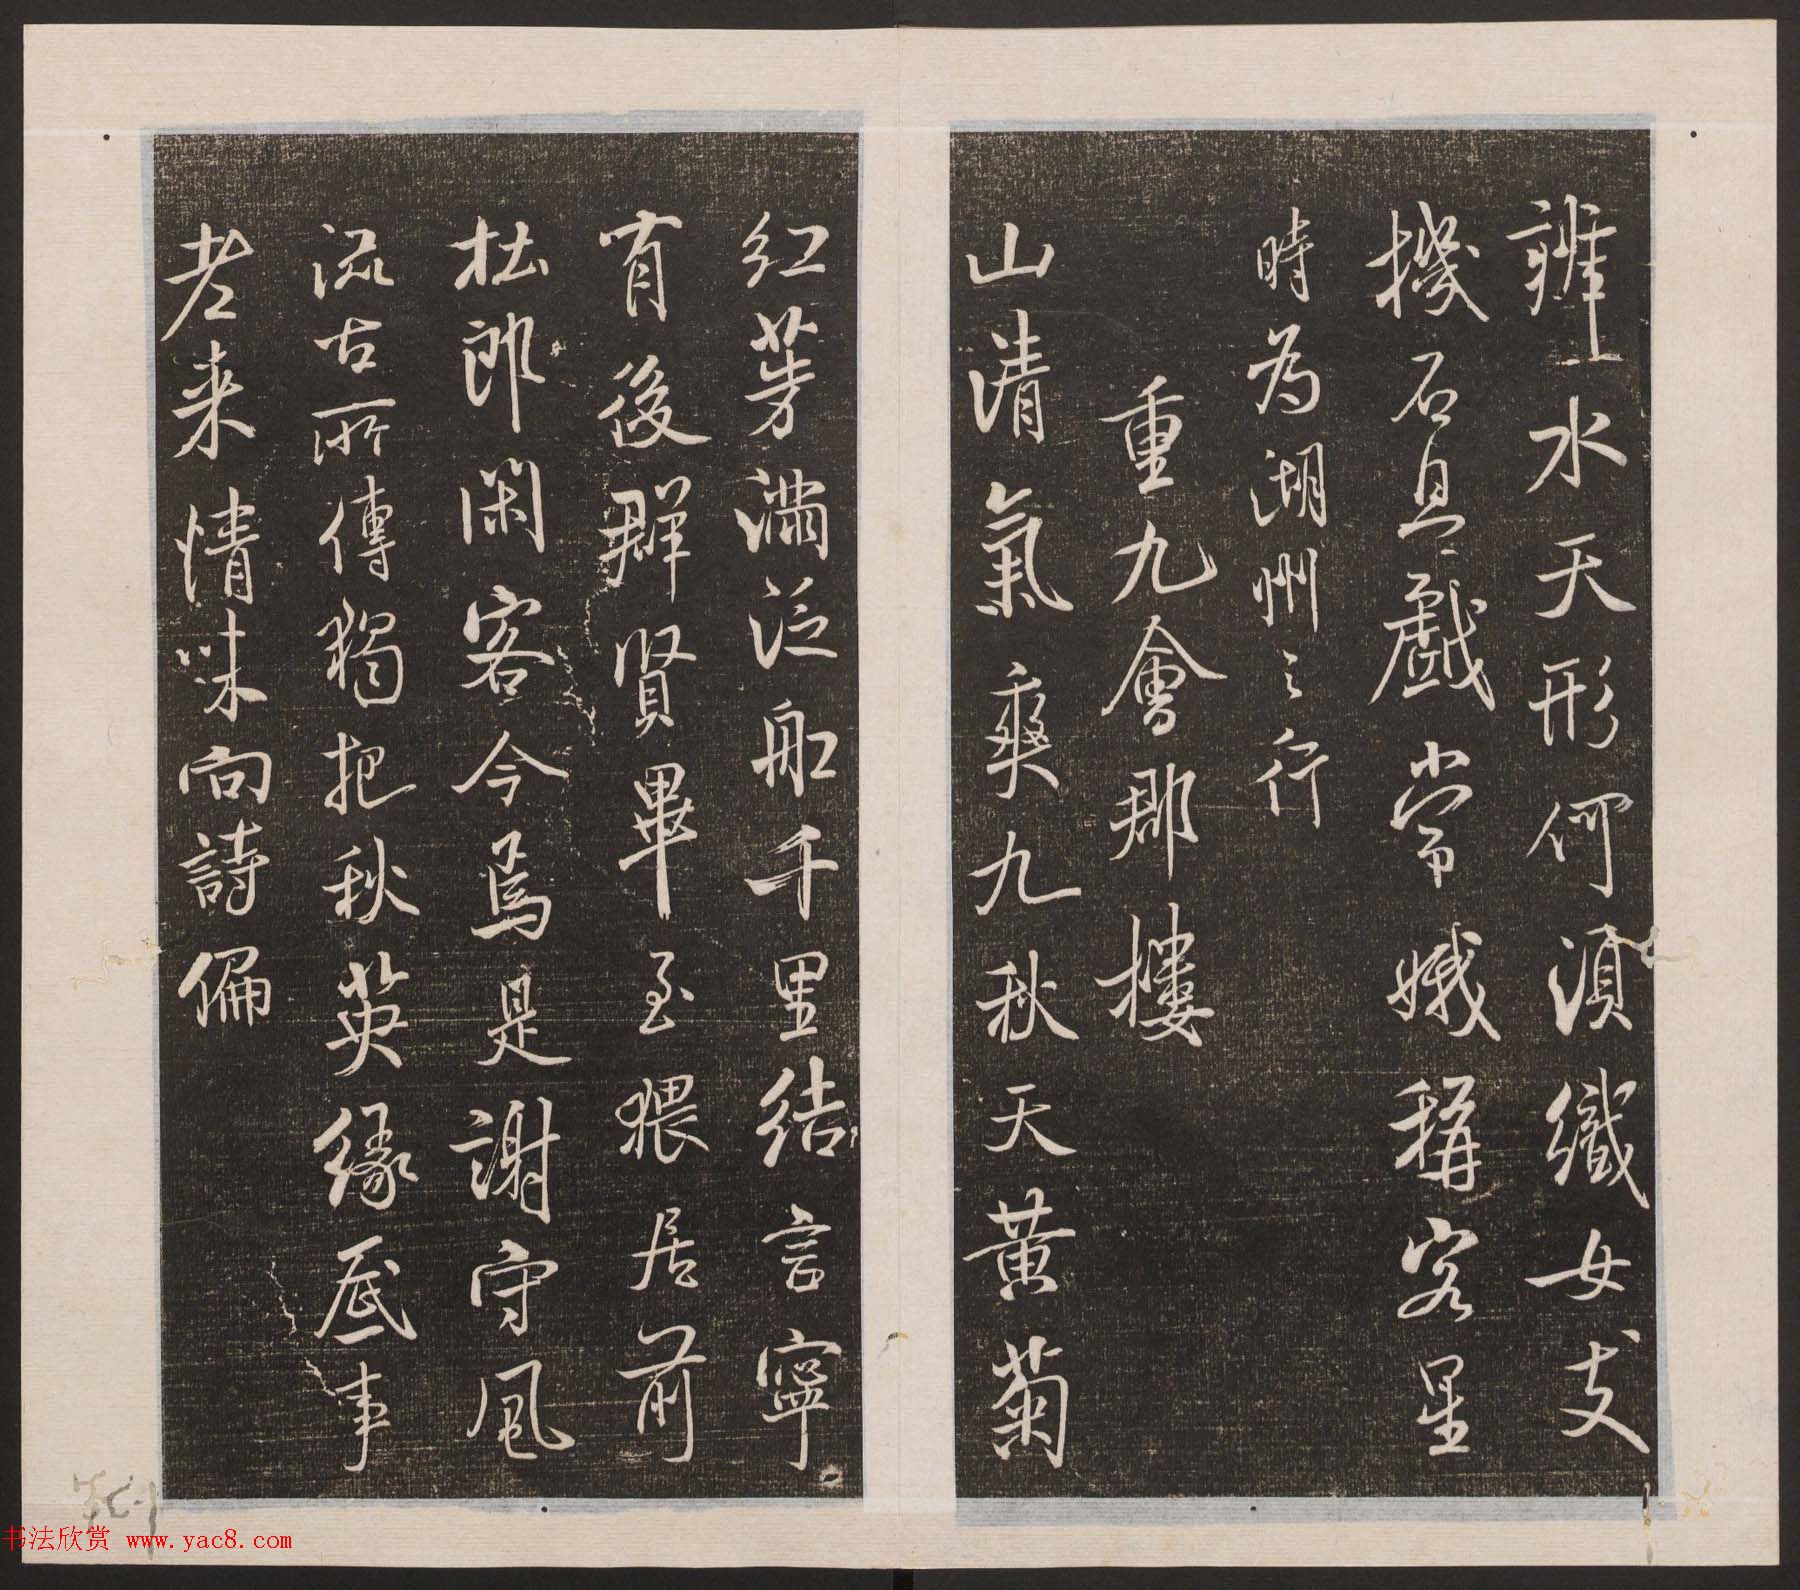 辨水天形何須織女支
機石且戲常娥稱客星
時為湖州之行
重九會郡樓
山清氣爽九秋天黃菊
紅茱滿泛船千里結言寧
有後群賢畢至猥居前
杜郎閑客今焉是謝守風
流古所傳獨把秋英緣底事
老來情味向詩偏
书法欣赏 www.yac8.com